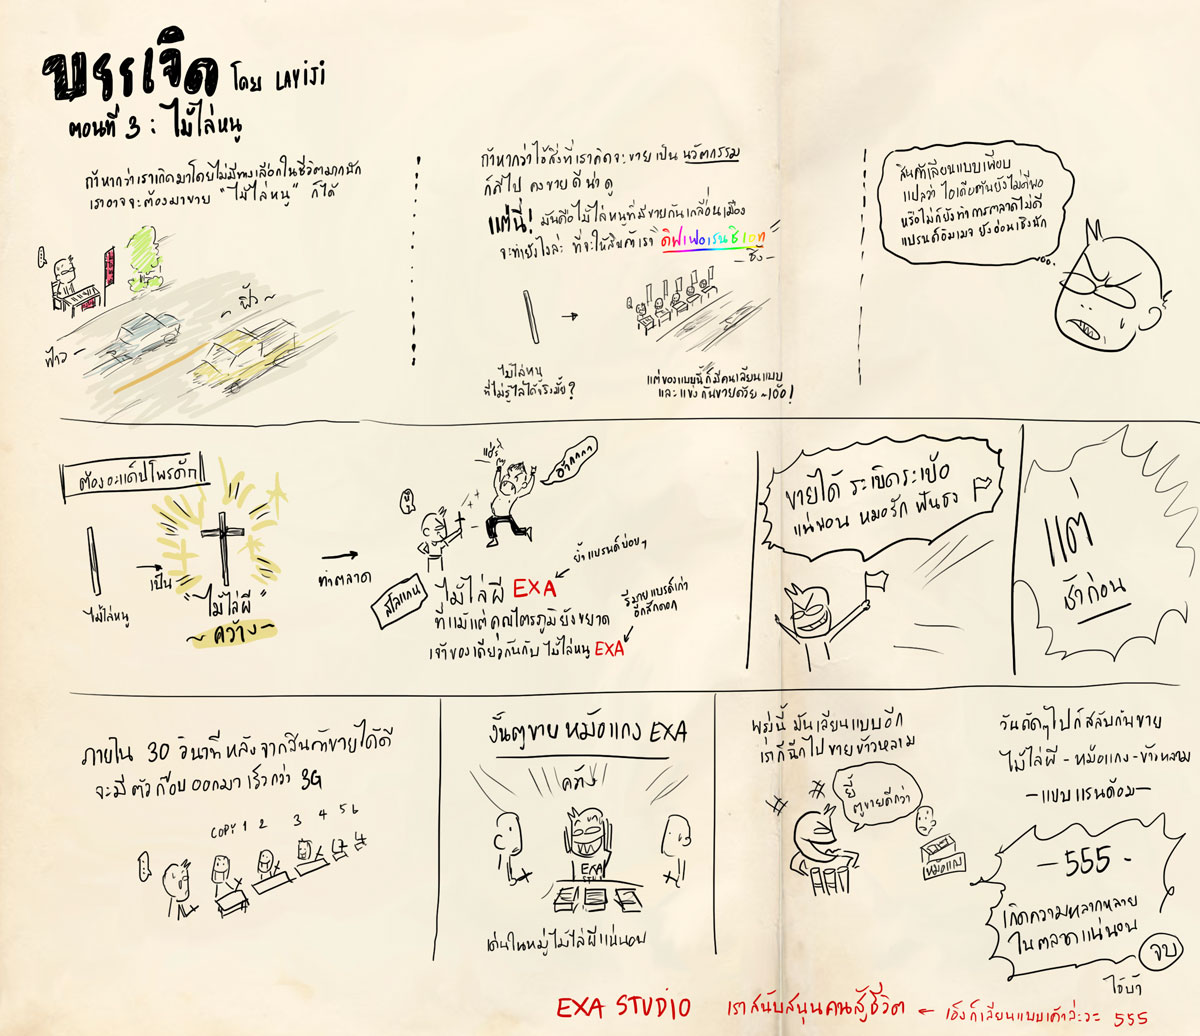 บรรเจิด โดย LAYIJI
ตอนที่ 3 : ไม้ไล่หนู
ถ้าหากว่าเราเกิดมาโดยไม่มีทางเลือกในชีวิตมากนัก
เราอาจจะต้องมาขาย "ไม้ไล่หนู" ก็ได้
ฟ้าว
~ฟ้า~
ถ้าหากว่าไอ้สิ่งที่เราคิดจะขาย เป็น นวัตกรรม
ก็ดีไป คงขายดีน่าดู
แต่นี่! มันคือไม้ไล่หนูที่มีขายกันเกลื่อนเมือง
จะทำยังไงล่ะ ที่จะให้สินค้าเรา ดิฟเฟอเรนชิเอท
- ซึ่ง -
ไม้ไล่หนู
ที่ไม่รู้ไล่ได้จริงมั้ย?
แต่ของแบบนี้ก็มีคนเลียนแบบ
และแข่งกันขายด้วย ~เออ!
สินค้าเลียนแบบเพียบ
แปลว่า ไอเดียตันยังไม่ดีพอ
หรือไม่ก็ยังทำการตลาดไม่ดี
แบรนด์อิมเมจ ยังอ่อนเชิงนัก
ต้องอะแด็ปโพรดัก
ไม้ไล่หนู
เป็น
"ไม้ไล่ผี"
~ คว้าง ~
ทำตลาด
แฮร่
อ๊ากกกก
สโลแกน
ไม้ไล่ผี EXA
ย้ำแบรนด์บ่อยๆ
ที่แม้แต่คุณไตรภูมิยังขยาด
เจ้าของเดียวกันกับ ไม้ไล่หนู EXA
รีมายแบรด์เก่า
อีกสักดอก
ขายได้ ระเบิดระเบ้อ
แน่นอน หมอรัก ฟันธง
แต่
ช้าก่อน
ภายใน 30 วินาที หลังจากสินค้าขายได้ดี
จะมี ตัวก๊อป ออกมา เร็วกว่า 3G
COPY 1 2 3 4 5 6
งั้นตูขาย หม้อแกง EXA
คว้าง
EXA
เด่นในหมู่ไม้ไล่ผีแน่นอน
พรุ่งนี้ มันเลียนแบบอีก
เราก็ฉีกไปขายข้าวหลาม
ยี้
ตูขายดีกว่า
หม้อแกง
วันถัดๆไปก็สลับกันขาย
ไม้ไล่ผี - หม้อแกง - ข้าวหลาม
- แบบแรนด้อม -
- 555 -
เกิดความหลากหลาย
ในตลาดแน่นอน
จบ
ไอ้บ้า
EXA STUDIO เราสนับสนุนคนสู้ชีวิต ← เอ็งก็เลียนแบบเค้าล่ะวะ 555